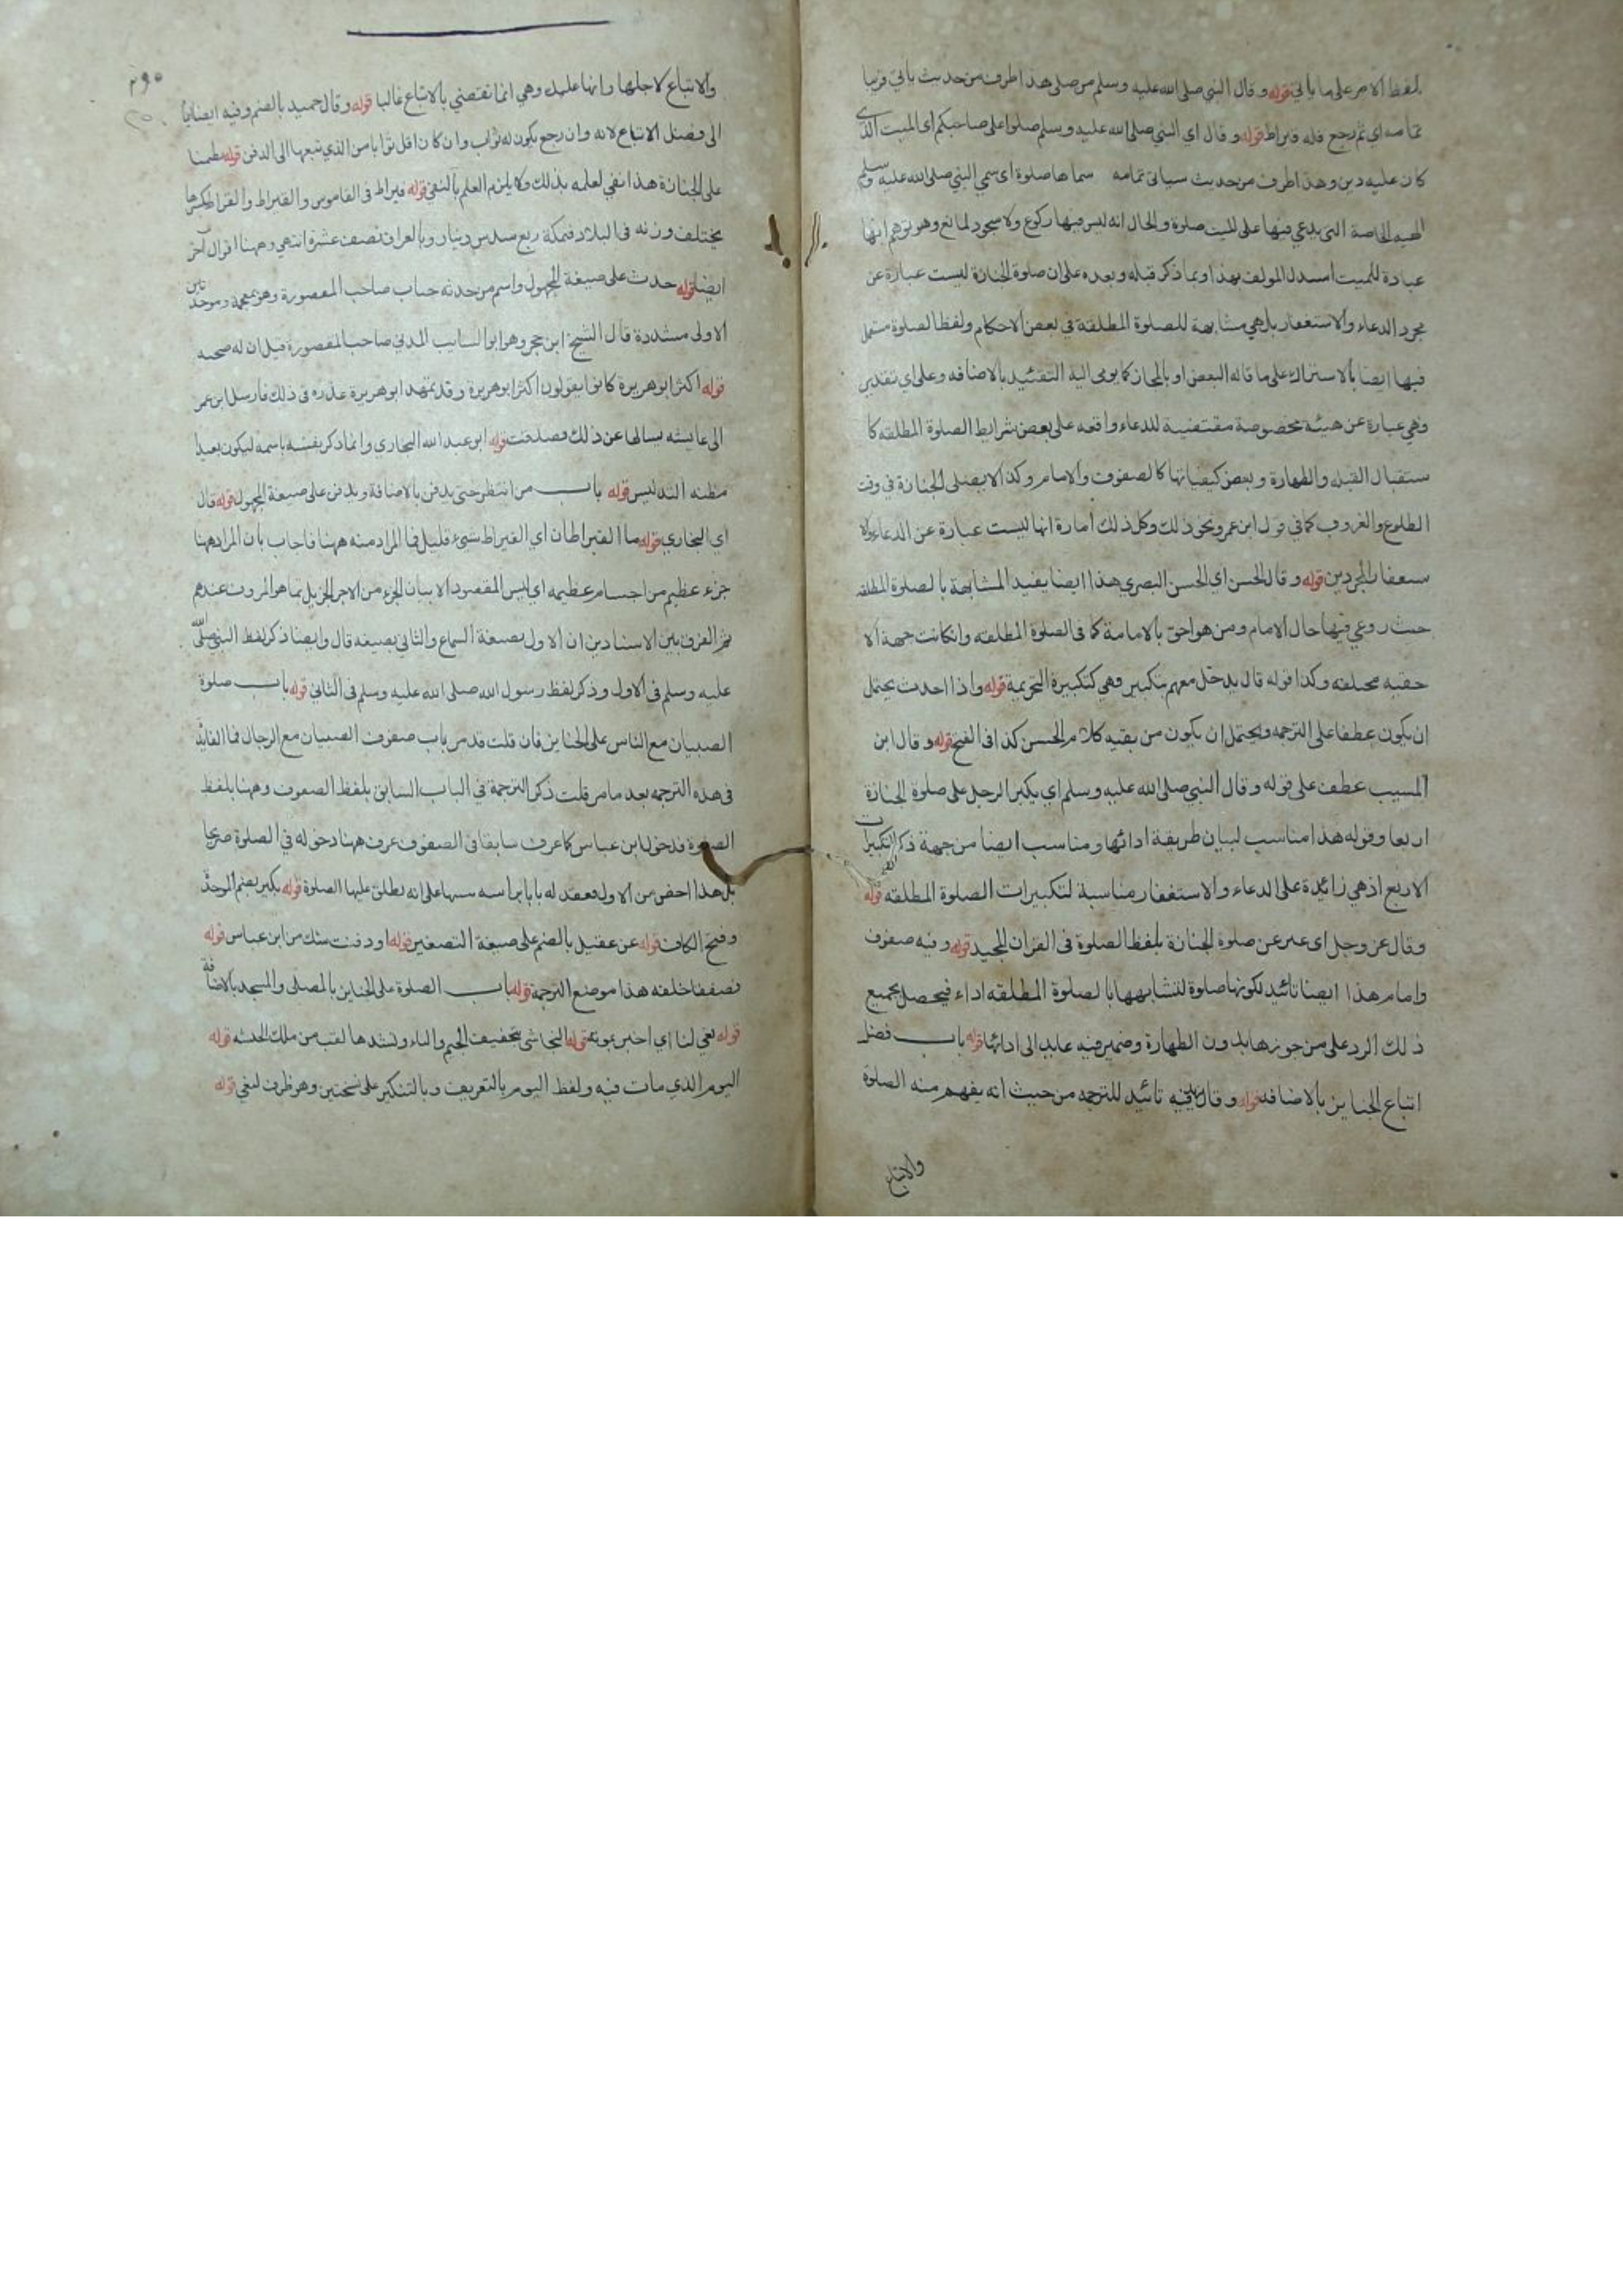 لفظ الامر على ما يأتي قوله وقال النبي صلى الله عليه وسلم من صلى هذا طرف من حديث يأتي قريبا
تمامه اي ثم يرجع فله قيراط قوله وقال اي النبي صلى الله عليه وسلم صلوا على صاحبكم اي الميت الذي
كان عليه دين وهذا طرف من حديث سياتى تمامه سماها صلوة اى سمي النبي صلى الله عليه وسلم
الهيه الخاصة التى يدعي فيها على للميت صلوة والحال انه ليس فيها ركوع ولا سجود لمانع وهو توهم انها
عبادة للميت استدل المولف بهذا وبما ذكر قبله وبعده على ان صلوة الجنازة ليست عبارة عن
مجرد الدعاء والاستغفار بل هي مشابهة للصلوة المطلقة في بعض الاحكام ولفظ الصلوة مستعمل
فيها ايضا بالاستراك على ما قاله البعض او بالمجاز كما يومى اليه التقئيد بالاضافه وعلى اي تقدير
وهي عبارة عن هيئة مخصوصة مقتضية للدعاء واقعه على بعض شرايط الصلوة المطلقه كا
ستقبال القبله والطهارة وبعض كيفياتها كالصفوف والامام وكذا لا يصلى الجنازة في وقت
الطلوع والغروب كما في قول ابن عمر ونحو ذلك وكل ذلك أمارة انها ليست عبارة عن الدعاء ولا
ستغفار المجردين قوله وقال الحسن اي الحسن البصري هذا ايضا يفيد المشابهة بالصلوة المطلقه
حيث روعي فيها حال الامام ومن هو احق بالامامة كما فى الصلوة المطلقه وانكانت جهة الا
حقيه مختلفه وكذا قوله قال يدخل معهم بتكبير وهي كتكبيرة التحريمة قوله واذا احدث يحتمل
ان يكون عطفا على الترجمه ويحتمل ان يكون من بقيه كلام الحسن كذا فى الفتح قوله وقال ابن
المسيب عطف على قوله وقال النبي صلى الله عليه وسلم اي يكبر الرجل على صلوة الجنازة
اربعا وقوله هذا مناسب لبيان طريقة ادائها ومناسب ايضا من جهة ذكر التكبيرات
الاربع اذ هي زائدة على الدعاء والاستغفار مناسبة لتكبيرات الصلوة المطلقه قوله
وقال عز وجل اى عبر عن صلوة الجنازة بلفظ الصلوة فى القران المجيد قوله وفيه صفوف
وامام هذا ايضا تائيد لكونها صلوة لتشابهها بالصلوة المطلقه اداء فيحصل بجميع
ذلك الرد على من جوزها بدون الطهارة وضمير فيه عايد الى ادائها قوله باب فضل
اتباع الجنايز بالاضافه قوله وقال زيد فيه تائيد للترجمه من حيث انه يفهم منه الصلوة
والاتباع
٢٩٠
والاتباع لاجلها وانها عليك وهي انما تقتضي بالاتباع غالبا قوله وقال حميد بالضم وفيه ايضا ايما
الى فضل الاتباع لانه وان رجع يكون له ثواب وان كان اقل ثوابا من الذي تبعها الى الدفن قوله
على الجنازة هذا نفي لعلمه بذلك ولا يلزم العلم بالنفي قوله قيراط فى القاموس والقيراط والقراط بكسرها
يختلف وزنه فى البلاد فبمكة ربع سدس دينار وبالعراق نصف عشرة انتهى وههنا اقوال آخر
ايضا قوله حدث على صيغة المجهول واسم من حدثه خباب صاحب المقصورة وهو بمعجمة وموحدتين
الاولى مشددة قال الشيخ ابن حجر وهو ابو السايب المدني صاحب المقصورة قيل ان له صحبه
قوله اكثر ابو هريرة كانوا يقولون اكثر ابو هريرة وقد تمهد ابو هريرة عذره فى ذلك فارسل ابن عمر
الى عايشه يسالها عن ذلك فصدقت قوله ابو عبد الله البخارى وانما ذكر نفسه باسمه ليكون بعيدا
مظنه التدليس قوله باب من انتظر حتى يدفن بالاضافة ويدفن على صيغة المجهول قوله قال
اي البخاري قوله ما القيراطان اي القيراط شيء قليل فما المراد منه ههنا فاجاب بأن المراد ههنا
جزء عظيم من اجسام عظيمه اي ليس المقصود الا بيان الجزء من الاجر الجزيل بما هو المروف عندهم
ثم الفرق بين الاسنادين ان الاول بصيغة السماع والثاني بصيغه قال وايضا ذكر لفظ النبي صلى الله
عليه وسلم فى الاول وذكر لفظ رسول الله صلى الله عليه وسلم فى الثاني قوله باب صلوة
الصبيان مع الناس على الجنايز فان قلت قد مر باب صفوف الصبيان مع الرجال فما الفائدة
فى هذه الترجمه بعد ما مر قلت ذكر الترجمة في الباب السابق بلفظ الصفوف وههنا بلفظ
الصلوة فدخول ابن عباس كما عرف سابقا فى الصفوف عرف ههنا دخوله في الصلوة صريحا
بل هذا اخص من الاول فعقد له بابا براسه سيما على انه يطلق عليها الصلوة قوله بكير بضم الموحدة
وفتح الكاف قوله عن عقيل بالضم على صيغة التصغير قوله او دفنت شك من ابن عباس قوله
فصففنا خلفه هذا موضع الترجمة قوله باب الصلوة على الجنايز بالمصلى والمسجد بالاضافة
قوله نعى لنا اي اخبر بموته قوله النجاشى بتخفيف الجيم والياء وتشدها لقب من ملك الحبشه قوله
اليوم الذي مات فيه ولفظ اليوم بالتعريف وبالتنكير على نسختين وهو ظرف لنعي قوله